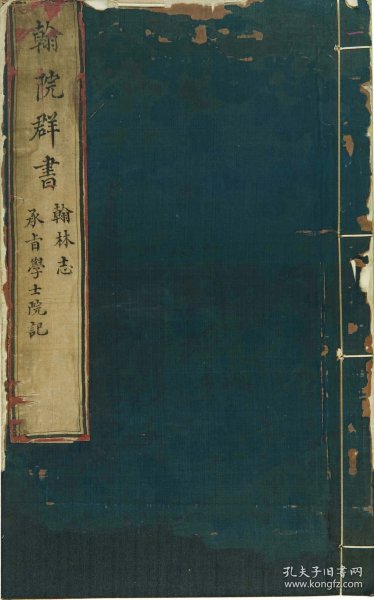 翰院群書
翰林志
承旨學士院記
孔夫子旧书网
www.kongfz.com